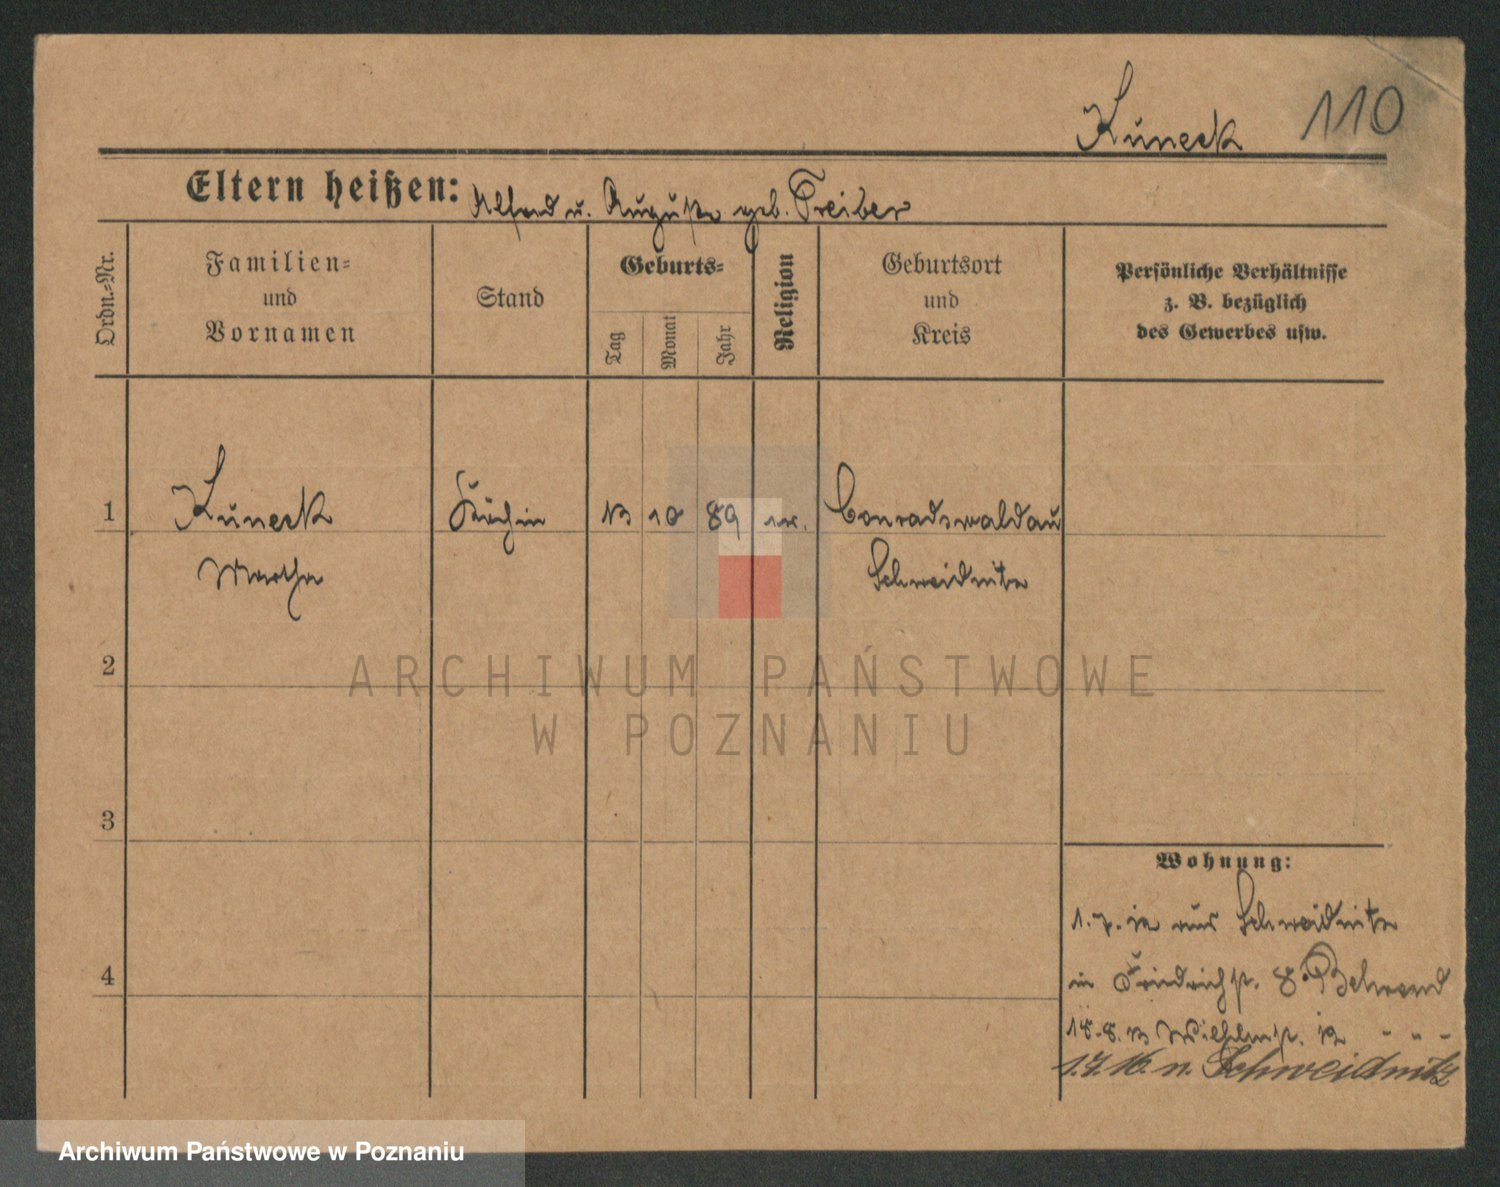 Kuneck 110
Eltern heißen: Alfred u. Auguste geb. Treiber
Ordn.-Nr.
Familien-
und
Vornamen
Stand
Geburts-
Tag
Monat
Jahr
Religion
Geburtsort
und
Kreis
Persönliche Verhältnisse
z. B. bezüglich
des Gewerbes usw.
1 Kuneck Köchin 13 10 89 Conradswaldau
Martha Schweidnitz
2
3
4
Wohnung:
1.7. 12 aus Schweidnitz
in Friedrichst. 8 Behrend
15.8.13 Wilhelmst. 12 - - -
1.7.16. n. Schweidnitz
ARCHIWUM PAŃSTWOWE
W POZNANIU
Archiwum Państwowe w Poznaniu